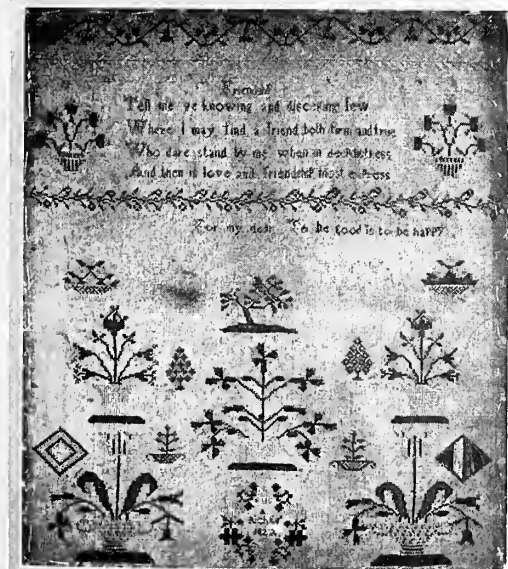 Friendship
Tell me ye knowing and discerning few
Where I may find a friend both firm and true
Who dare stand by me when in deep distress
And then is love and friendship most express
For my dear To be good is to be happy